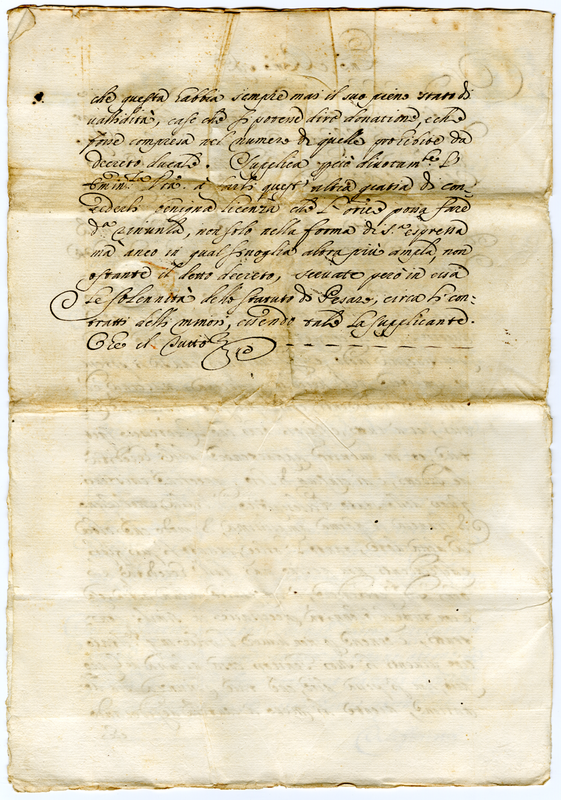 che questa habbia sempre mai il suo pieno stato di
validità, caso che si potesse dire donatione, e che
fosse compresa nel numero di quelle prohibite da
Decreto ducale. Supplica però divotam.te V.
a farli quest' altra gratia di con-
cederli benigna licenza che l' possa fare
d.a renuntia, non solo nella forma di s.a espressa
mà anco in qual si voglia altra più ampla, non
ostante il detto decreto, servate però in essa
le solennità dello statuto di Pesaro, circa li con-
tratti delli minori, essendo tale la supplicante.
Che il tutto